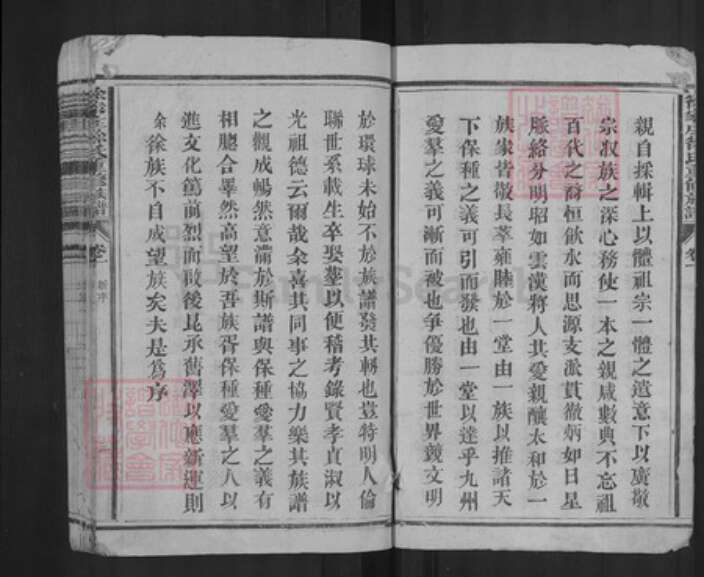 親自採輯上以體祖宗一體之遺意下以廣敬
宗收族之深心務使一本之親咸數典不忘祖
百代之裔恒飲水而思源支派貫徹炳如日星
脈絡分明昭如雲漢將人共愛親釀太和於一
族家皆敬長萃雍睦於一堂由一族以推諸天
下保種之義可引而發也由一堂以達乎九州
愛羣之義可漸而被也爭優勝於世界競文明
於環球未始不於族譜發其軔也豈特明人倫
聯世系載生卒娶塟以便稽考錄賢孝貞淑以
光祖德云爾哉余喜其同事之協力樂其族譜
之觀成暢然意滿於斯譜與保種愛羣之義有
相聽合睪然高望於吾族胥保種愛羣之人以
進文化篤前烈而啟後昆承舊澤以應新運則
余徐族不自成望族矣夫是爲序
卷一
FamilySearch